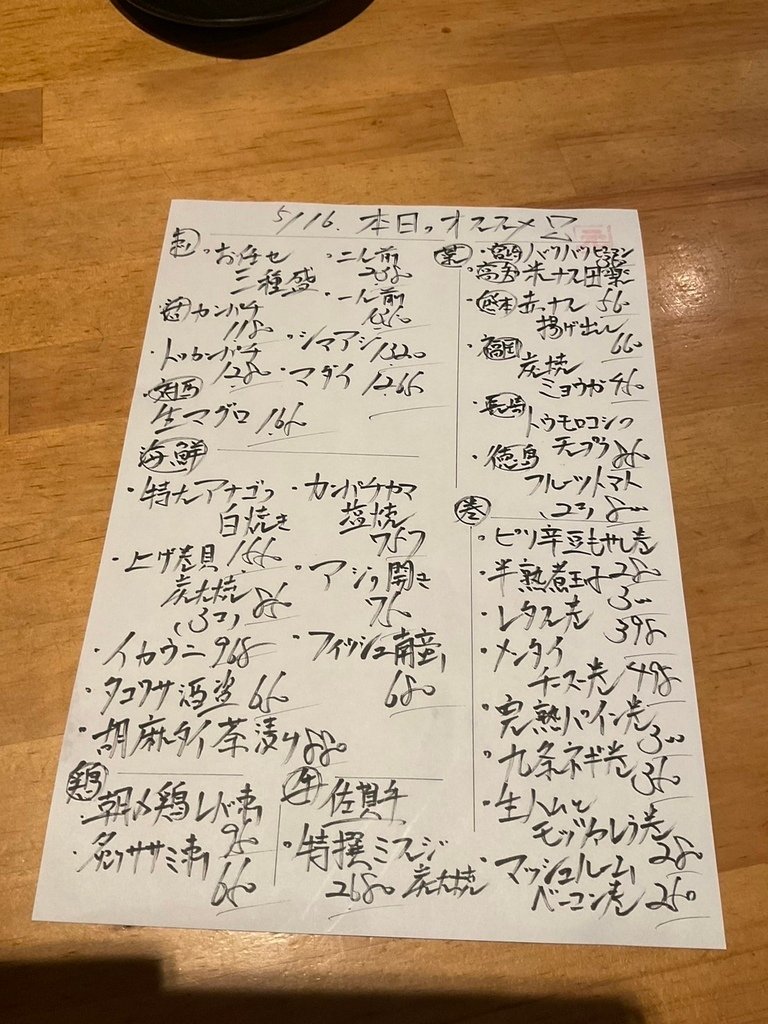 5/16. 本日のオススメ
刺
・お任せ
三種盛
・二人前
・一人前
活 カンパチ
1180
・トロカンパチ
1280
・シマアジ 1320
・マダイ 1265
対馬
生マグロ
海鮮
・特大アナゴの
白焼き
・上げ巻貝
炭火焼
(3コ)
・イカウニ 968
・タコワサ酒盗
・胡麻タイ茶漬け 880
・カンパチカマ
塩焼
・アジの開き
・フィッシュ南蛮
680
鶏
・朝〆鶏レバ刺
・炙りササミ刺
牛 佐賀牛
・特撰ミスジ
2680 炭火焼
菜
・宮崎 パリパリピーマン
高知 米ナス田楽
・熊本 赤ナス
揚げ出し
・福岡
炭焼
ミョウガ
・長崎
トウモロコシの
テンプラ
・徳島
フルーツトマト
(2コ)
巻
・ピリ辛豆もやし巻
・半熟煮玉子 280
・レタス巻
398
・メンタイ
チーズ巻 498
・完熟パイン巻
・九条ネギ巻
・生ハムと
モッツァレラ巻
280
・マッシュルーム
ベーコン巻 250